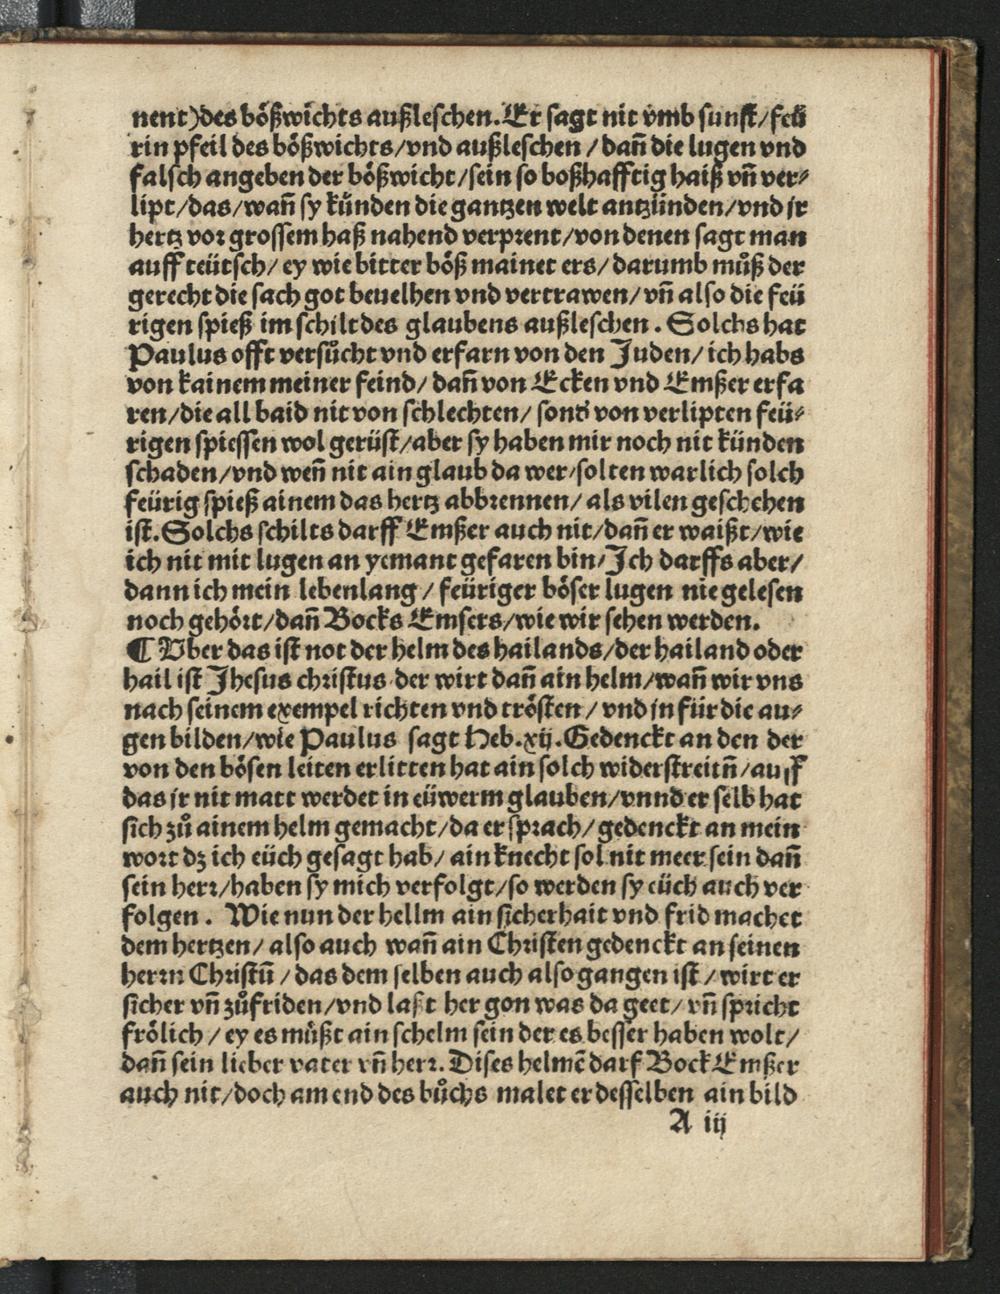 nent)des bößwichts außleschen. Er sagt nit vmb sunst/feü
rin pfeil des bößwichts/vnd außleschen / dañ die lugen vnd
falsch angeben der bößwicht/sein so boßhafftig haiß vñ ver⸗
lipt/das/wañ sy künden die gantzen welt antzünden/vnd jr
hertz vor grossem haß nahend verprent/von denen sagt man
auff teütsch/ ey wie bitter böß mainet ers/ darumb muͦß der
gerecht die sach got beuelhen vnd vertrawen/ vñ also die feü
rigen spieß im schilt des glaubens außleschen . Solchs hat
Paulus offt versuͦcht vnd erfarn von den Juden/ ich habs
von kainem meiner feind/ dañ von Ecken vnd Emßer erfa
ren/die all baid nit von schlechten/ sond' von verlipten feü⸗
rigen spiessen wol gerüst/aber sy haben mir noch nit künden
schaden/vnd weñ nit ain glaub da wer/solten warlich solch
feürig spieß ainem das hertz abbrennen/ als vilen geschehen
ist. Solchs schilts darff Emßer auch nit/dañ er waißt/wie
ich nit mit lugen an yemant gefaren bin/Jch darffs aber/
dann ich mein lebenlang / feüriger böser lugen nie gelesen
noch gehört/dañ Bocks Emsers/wie wir sehen werden.
¶ Vber das ist not der helm des hailands/der hailand oder
hail ist Jhesus christus der wirt dañ ain helm/wañ wir vns
nach seinem exempel richten vnd trösten / vnd jn für die au⸗
gen bilden/wie Paulus sagt Heb.xij. Gedenckt an den der
von den bösen leiten erlitten hat ain solch widerstreitñ/auff
das jr nit matt werdet in eüwerm glauben/vnnd er selb hat
sich zuͦ ainem helm gemacht/da er sprach/gedenckt an mein
wort dz ich eüch gesagt hab/ ain knecht sol nit meer sein dañ
sein herr/haben sy mich verfolgt/so werden sy eüch auch ver
folgen . Wie nun der hellm ain sicherhait vnd frid machet
dem hertzen/ also auch wañ ain Christen gedenckt an seinen
herrn Christū / das dem selben auch also gangen ist / wirt er
sicher vñ zuͦfriden/vnd last her gon was da geet/ vñ spricht
frölich / ey es muͤßt ain schelm sein der es besser haben wolt/
dañ sein lieber vater vñ herr. Dises helmē darf Bock Emßer
auch nit/doch am end des buͦchs malet er desselben ain bild
A iij